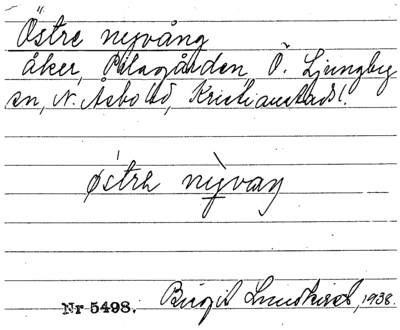 Östre nyvång
åker, Pilagården Ö. Ljungby
sn, N. Åsbo hd, Kristianstads l.
østrə nyvaŋ
Nr 5498. Birgit Lundkvist, 1938.